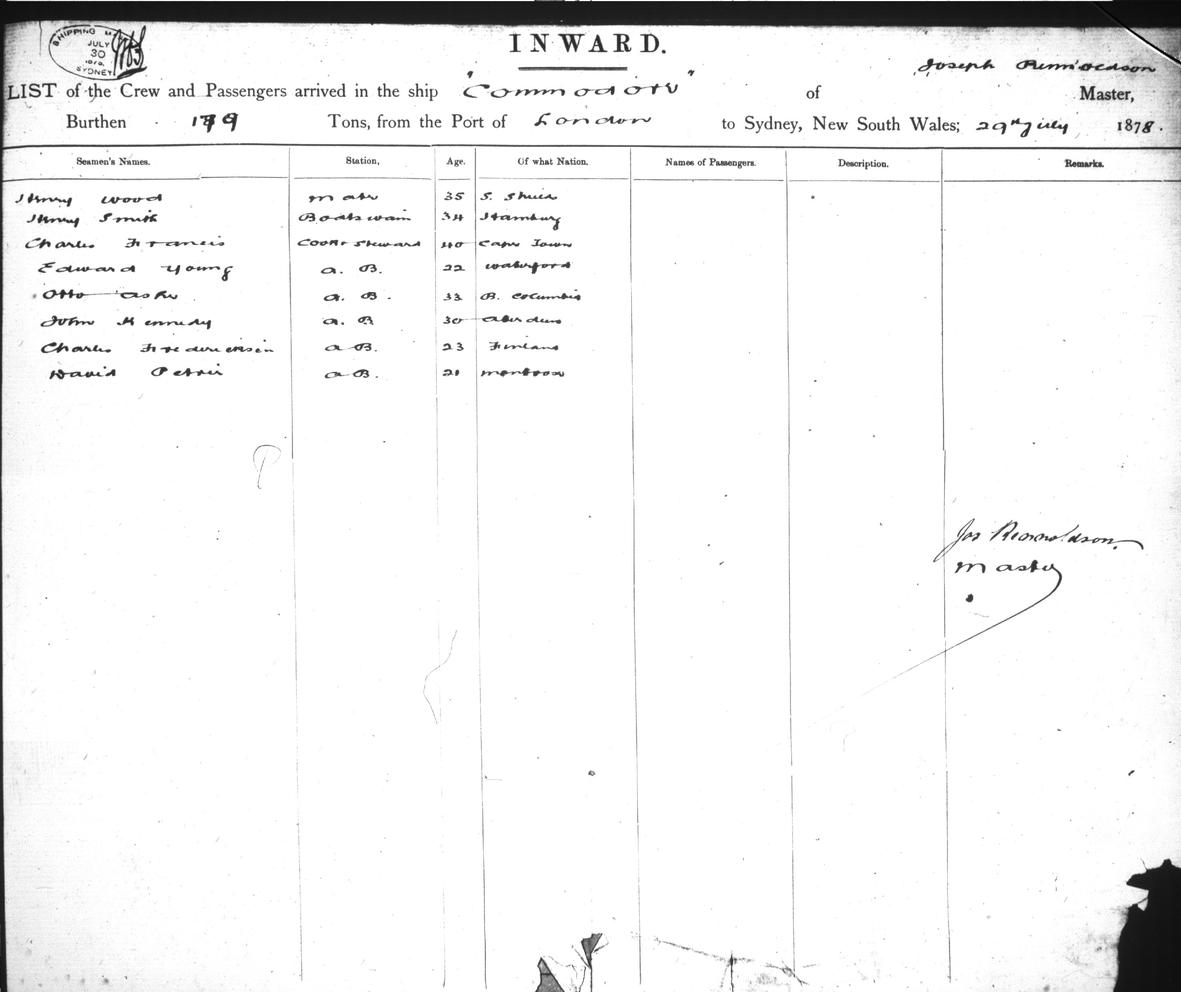 SHIPPING M
JULY
30
SYDNEY
INWARD.
Joseph
LIST of the Crew and Passengers arrived in the ship "Commodore" of Master,
Burthen 179 Tons, from the Port of London to Sydney, New South Wales; 29th July 1878.
Seamen's Names. Station, Age. Of what Nation. Names of Passengers. Description. Remarks.
Henry Wood Mate 35 S. Shields
Henry Smith Boatswain 34 Hamburg
Charles Francis Cook & Steward 40 Cape Town
Edward Young A. B. 22 Waterford
Otto A. B. 33 B. Columbia
John Kennedy A. B 30 Aberdeen
Charles Fredericksen A B. 23 Finland
David Petrie A B. 21 Montrose
Jos Rennoldson.
Master